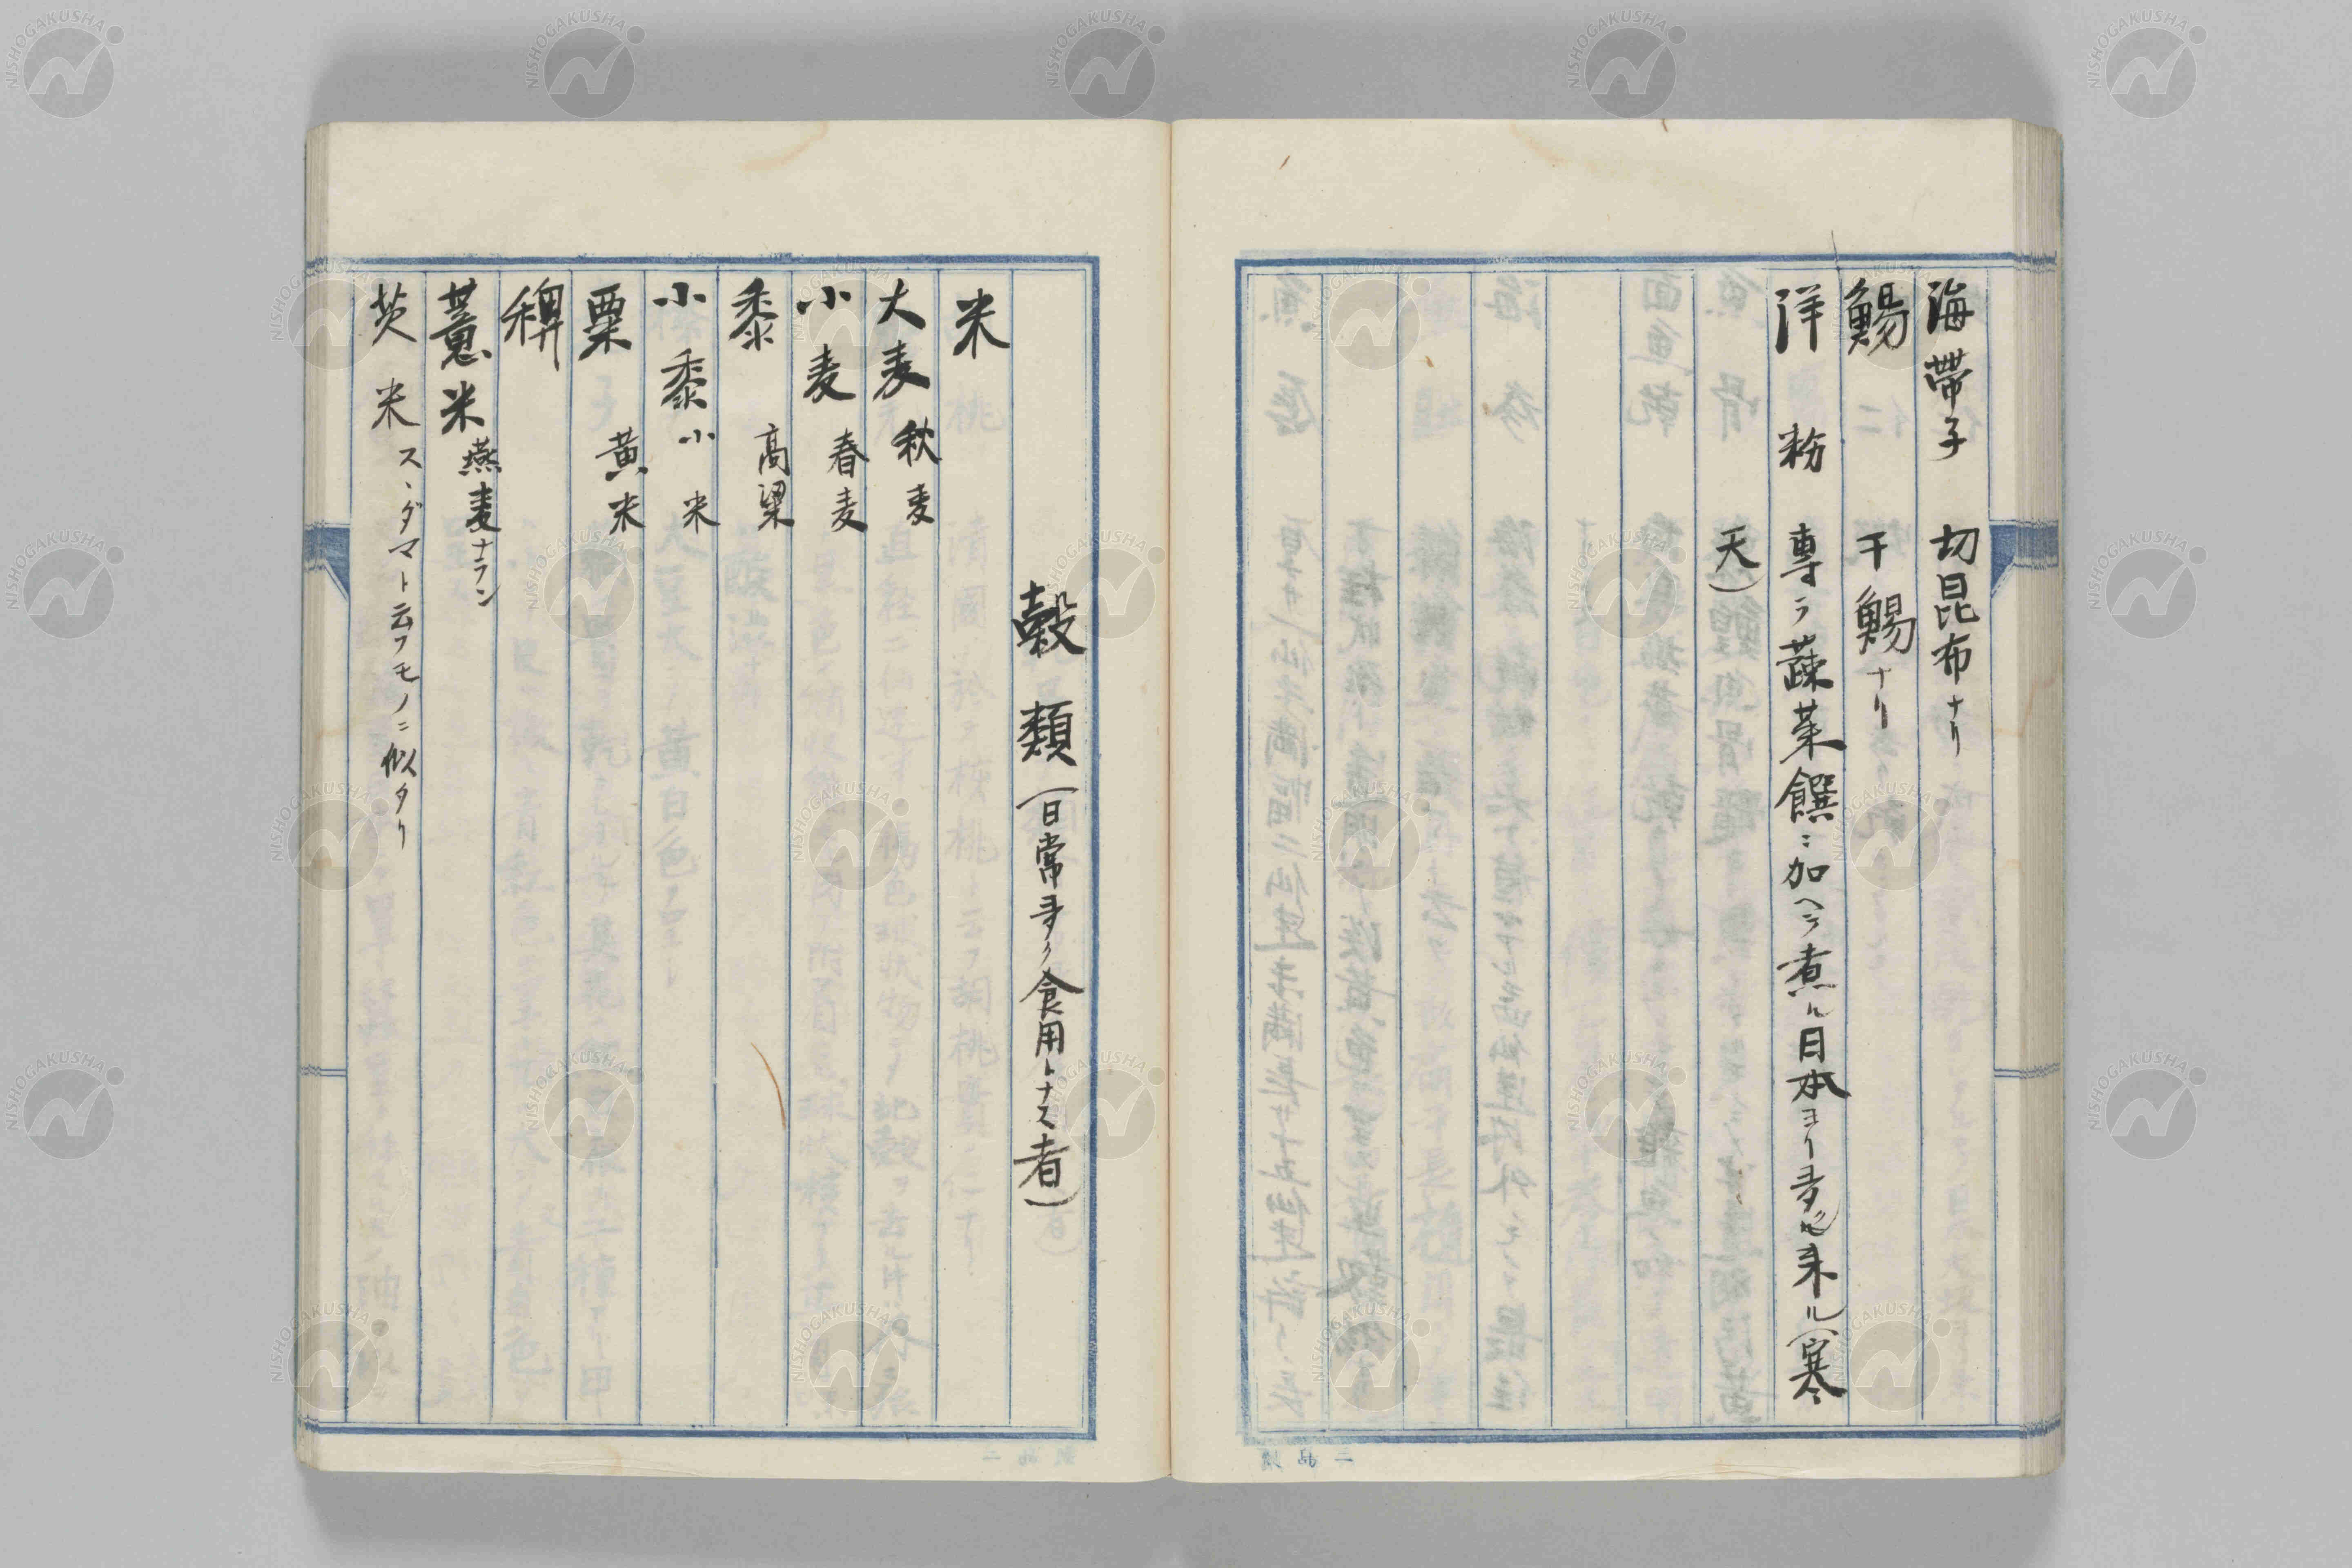 海帶子 切昆布ナリ
鯣 干鯣ナリ
洋粉 專ラ蔬菜饌ニ加ヘテ煮ル日本ヨリ多ク來ル(寒
天)
穀類(日常多ク食用トナス者)
米
大麦 秋麦
小麦 春麦
黍 高粱
小黍 小米
粟 黄米
稗
薏米 燕麦ナラン
芡米 スヽダマト云フモノニ似タリ
NISHOGAKUSHA